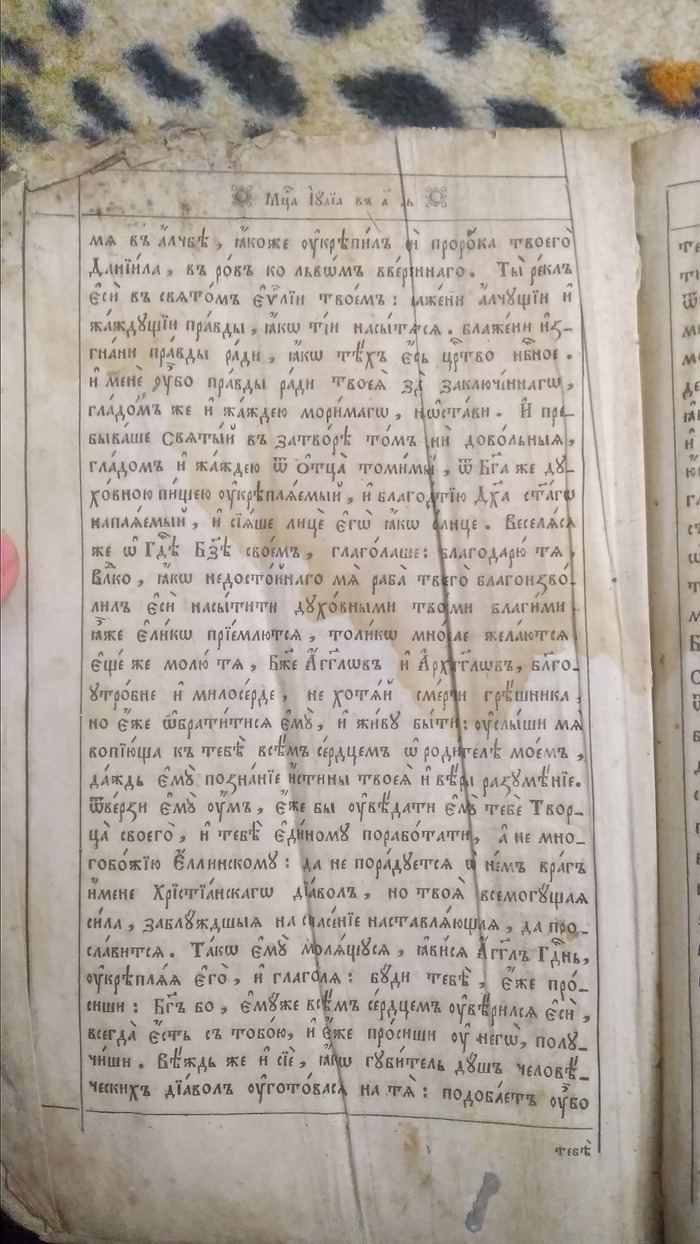 Мц҃а Іꙋлїа въ а҃
мѧ̀ въ а҆́лчбѣ, ꙗ҆́коже ᲂу҆крѣпи́лъ и҆̀ проро́ка твоего̀
Данїи́ла, въ ро́въ ко львѡ́мъ вве́рженнаго. Ты̀ ре́клъ
є҆сѝ въ свято́мъ є҆ѵⷢ҇лїи твое́мъ: а҆́лчꙋщїи и҆
жа́ждꙋщїи пра́вды, ꙗ҆́кѡ ті́и насы́тятся. блаже́ни и҆з-
гна́ни пра́вды ра́ди, ꙗ҆́кѡ тѣ́хъ є҆́сть црⷭ҇тво нбⷭ҇ное.
и҆ менѐ ᲂу҆̀бо пра́вды ра́ди твоея̀ здѣ̀ заключе́ннагѡ,
гла́домъ же и҆ жа́ждею мори́магѡ, не ѡ҆ста́ви. И҆ пре-
быва́ше Святы́й въ затво́рѣ то́мъ дни̑ дово́льныя,
гла́домъ и҆ жа́ждею ѿ ѻ҆тца̀ томи́мый, ѿ Бг҃а же дꙋ-
хо́вною пи́щею ᲂу҆крѣпля́емый, и҆ благода́тїю Дх҃а ст҃а́гѡ
напая́емый, и҆ сїя́ше лицѐ є҆гѡ̀ ꙗ҆́кѡ со́лнце. Веселя́ся
же ѡ҆ Гдⷭ҇ѣ Бз҃ѣ свое́мъ, глаго́лаше: благодарю́ тя,
Влⷣко, ꙗ҆́кѡ недосто́йнаго мя̀ раба̀ твоего̀ благоизво́-
лилъ є҆сѝ насы́тити дꙋхо́вными твои́ми благи́ми
ꙗ҆̀же є҆ли́кѡ прїе́млются, толи́кѡ мно́жае жела́ются.
є҆ще́ же молю́ тя, Бж҃е А҆́гг҃лѡвъ и҆ А҆рха́гг҃лѡвъ, бл҃го-
ᲂу҆тро́бне и҆ милосе́рде, не хотя́й сме́рти грѣ́шника,
но є҆́же ѡ҆брати́тися є҆мꙋ̀, и҆ жи́вꙋ бы́ти: ᲂу҆слы́ши мя̀
вопїю́ща къ тебѣ̀ всѣ́мъ се́рдцемъ ѡ҆ роди́телѣ мое́мъ,
да́ждь є҆мꙋ̀ позна́нїе и҆́стины твоея̀ и҆ вѣ́ры разꙋмѣ́нїе.
ѿве́рзи є҆мꙋ̀ ᲂу҆́мъ, є҆́же бы ᲂу҆вѣ́дати є҆мꙋ̀ тебѐ Твор-
ца̀ своего̀, и҆ тебѣ̀ є҆ди́номꙋ порабо́тати, а҆ не мно-
гобо́жїю Є҆́ллинскомꙋ: да не пора́дꙋется ѡ҆ не́мъ вра́гъ
и҆́мене Хрїстїа́нскагѡ дїа́волъ, но твоя̀ всемогꙋ́щая
си́ла, заблꙋ́ждшыя на спасе́нїе наставля́ющая, да про-
сла́вится. Та́кѡ є҆мꙋ̀ моля́щꙋся, ꙗ҆ви́ся А҆́гг҃лъ Гдⷭ҇нь,
ᲂу҆крѣпля́я є҆го̀, и҆ глаго́ля: бꙋ́ди тебѣ̀, є҆́же про́-
сиши: Бг҃ъ бо, є҆мꙋ́же всѣ́мъ се́рдцемъ ᲂу҆вѣ́рился є҆сѝ,
всегда̀ є҆́сть съ тобо́ю, и҆ є҆́же про́сиши ᲂу҆ негѡ̀, полꙋ́-
чиши. Вѣ́ждь же и҆ сїѐ, ꙗ҆́кѡ гꙋби́тель дꙋ́шъ человѣ́-
ческихъ дїа́волъ ᲂу҆гото́вася на тя̀: подоба́етъ ᲂу҆̀бо
тебѣ̀